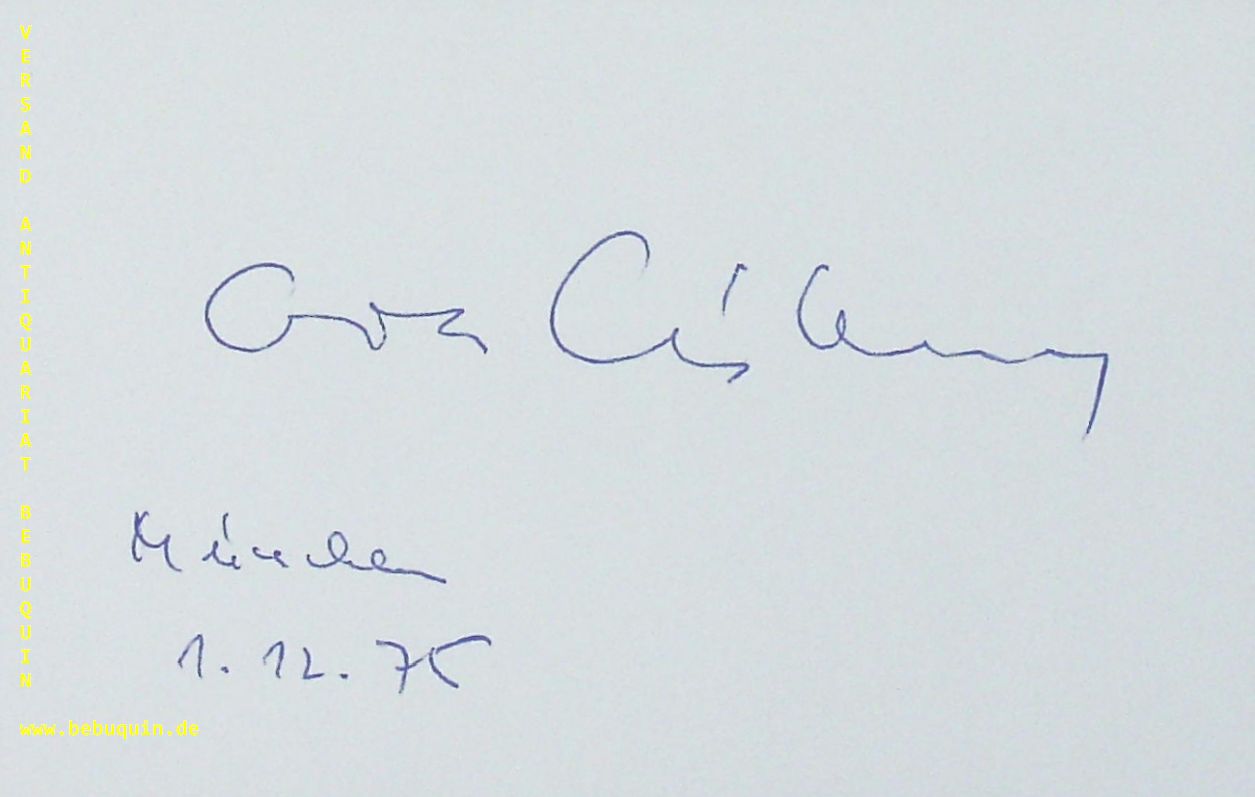 VERSAND ANTIQUARIAT BEBUQUIN
München
1.12.75
www.bebuquin.de